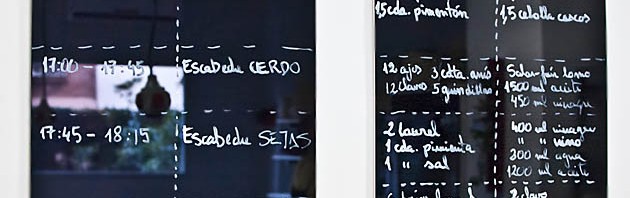 17:00 - 17:45 Escabeche CERDO
17:45 - 18:15 Escabeche SETAS
1,5 cda. pimentón 1,5 cebolla cascos
12 ajos 3 cdta. anís
12 clavo 5 guindillas
1500 ml aceite
450 ml vinagre
2 laurel 400 ml vinagre
1 cda. pimienta " " vino
1 " sal 300 ml agua
1200 ml aceite